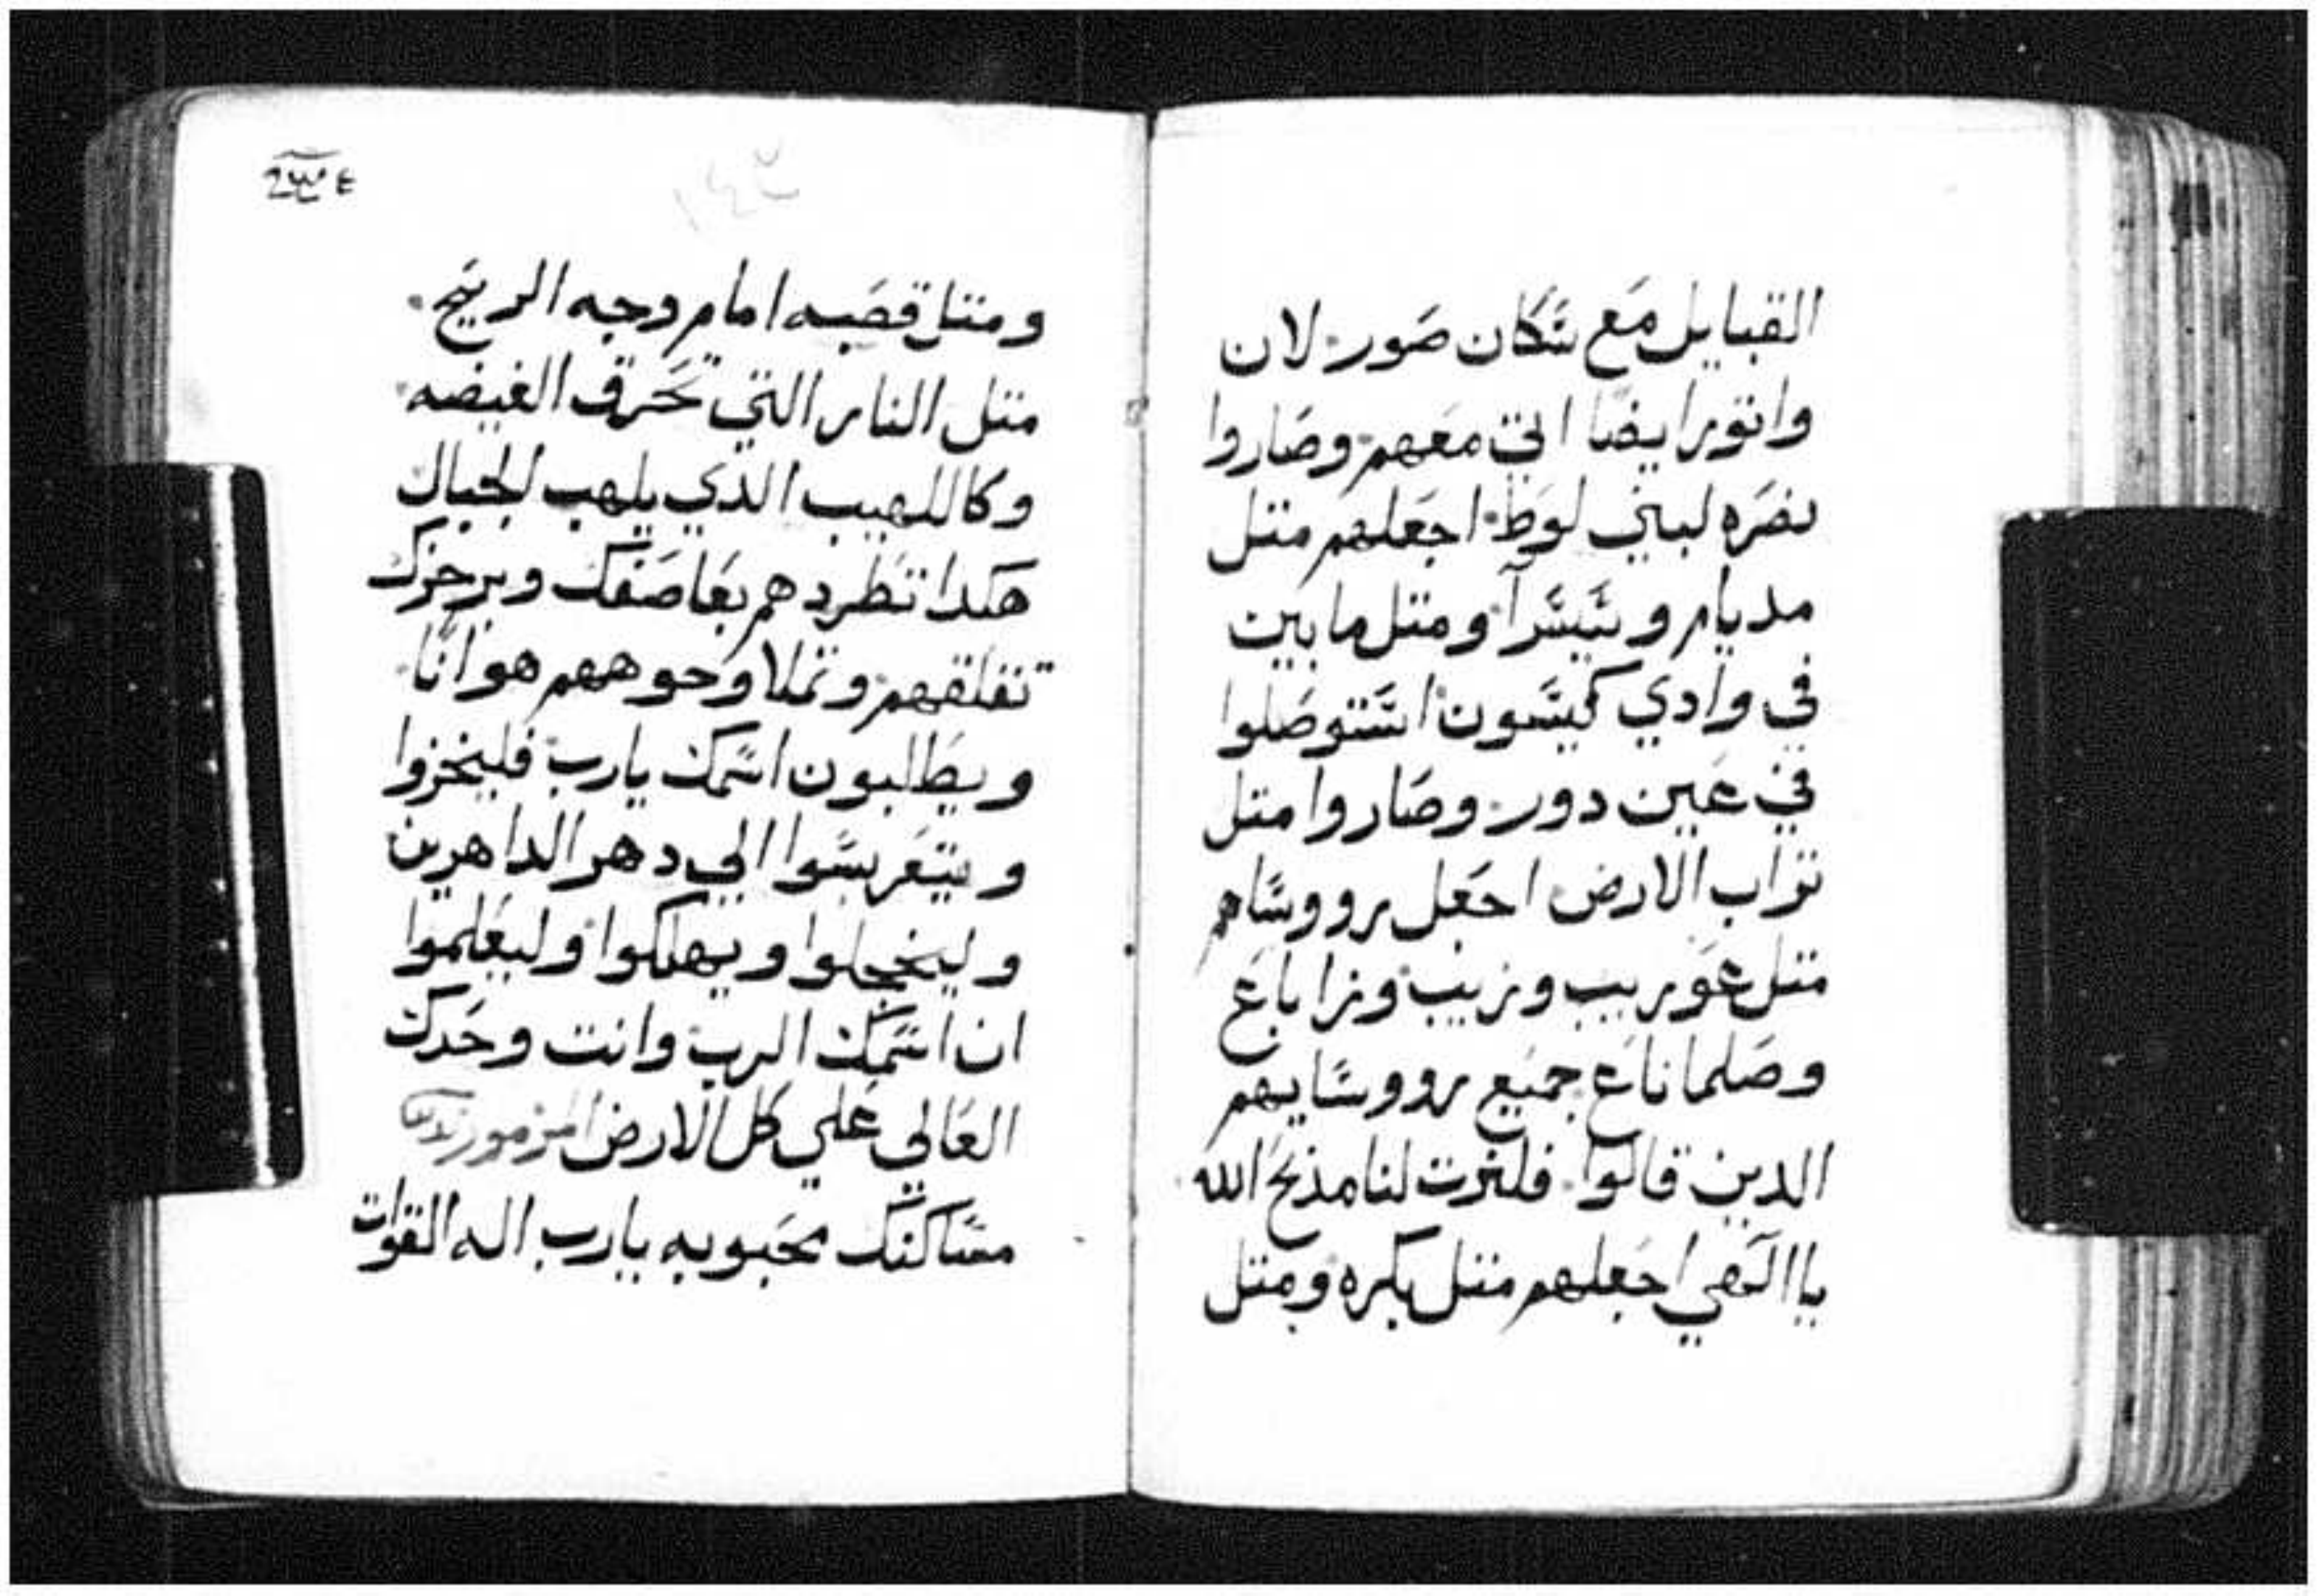 القبايل مع سكان صور لان
واتور ايضا اتي معهم وصاروا
نصره لبني لوط اجعلهم متل
مديام وسيسرا ومتل مابين
في وادي كيسون استوصلوا
في عين دور وصاروا متل
تراب الارض اجعل رووساهم
متل عوريب وزيب وزاباع
وصلماناع جميع رووسايهم
الدين قالوا فلنرت لنا مذبح الله
ياالهي اجعلهم متل بكره ومتل
١٤٣
ومتل قصبه امام وجه الريح
متل النار التي تحرق الغيضه
وكاللهيب الدي يلهب الجبال
هكدا تطردهم بعاصفك وبرجزك
تقلقهم وتملا وجوههم هوانا
ويطلبون اسمك يارب فليخزوا
ويتعربسوا الي دهر الداهرين
وليخجلوا ويهلكوا وليعلموا
ان اسمك الرب وانت وحدك
العالي علي كل الارض مزمور
مساكنك محبوبه يارب اله القوات